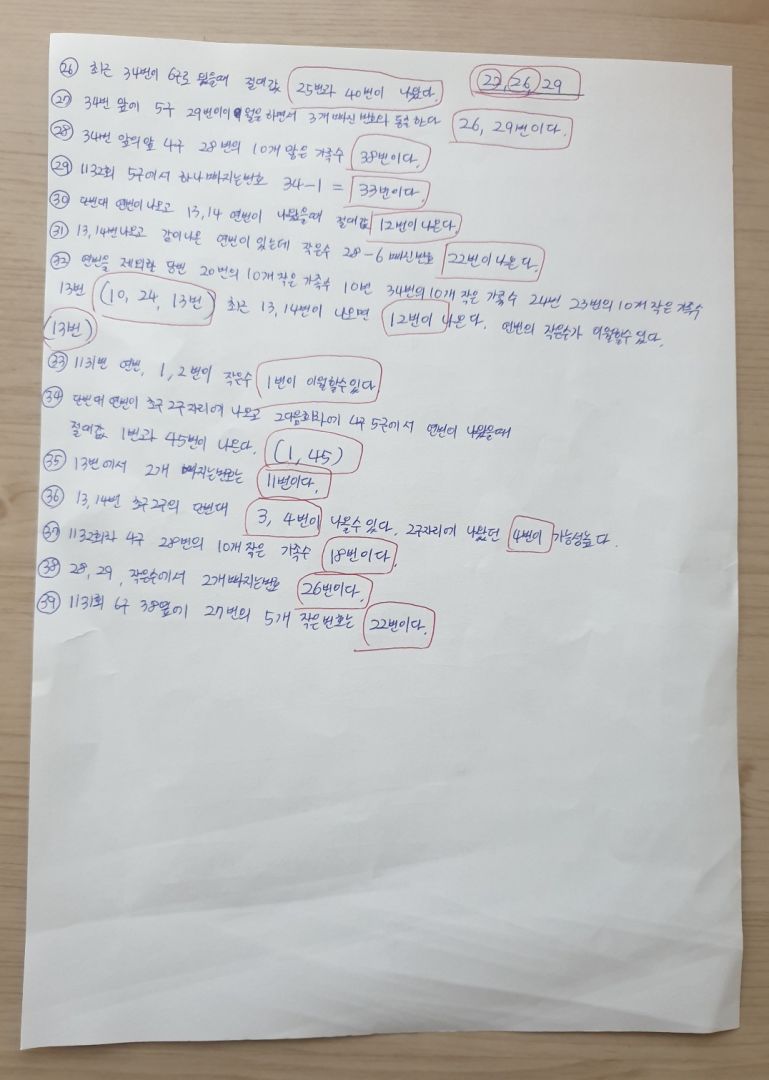 ㉖ 최근 34번이 6구로 됬을때 절대값 25번과 40번이 나왔다. 22, 26, 29
㉗ 34번 앞에 5구 29번이 이월을 하면서 3개 빠진 번호와 동출한다 26, 29번이다.
㉘ 34번 앞의앞 4구 28번의 10개 많은 가족수 38번이다.
㉙ 1132회 5구에서 하나 빠지는번호 34-1 = 33번이다.
㉚ 단번대 연번이 나오고 13,14 연번이 나왔을때 절대값 12번이 나온다.
㉛ 13,14번 나오고 같이나온 연번이 있는데 작은수 28-6 빠진번호 22번이 나온다.
㉜ 연번을 제외한 당번 20번의 10개 작은 가족수 10번 34번의 10개 작은 가족수 24번 23번의 10개 작은 가족수
13번 (10, 24, 13번) 최근 13,14번이 나오면 12번이 나온다. 연번의 작은수가 이월할수 있다.
(13번)
㉝ 1131번 연번, 1,2번이 작은수 1번이 이월할수있다
㉞ 단번대 연번이 초구 2구자리에 나오고 2다음회차에 4구 5구에서 연번이 나왔을때
절대값 1번과 45번이 나온다. (1, 45)
㉟ 13번에서 2개 빠지는번호는 11번이다.
㊱ 13,14번 초구2구의 단번대 3, 4번이 나올수 있다. 2구자리에 나왔던 4번이 가능성높다.
㊲ 1132회차 4구 28번의 10개 작은 가족수 18번이다.
㊳ 28, 29, 작은수에서 2개빠지는번호 26번이다.
㊴ 1131회 6구 38옆에 27번의 5개 작은번호는 22번이다.